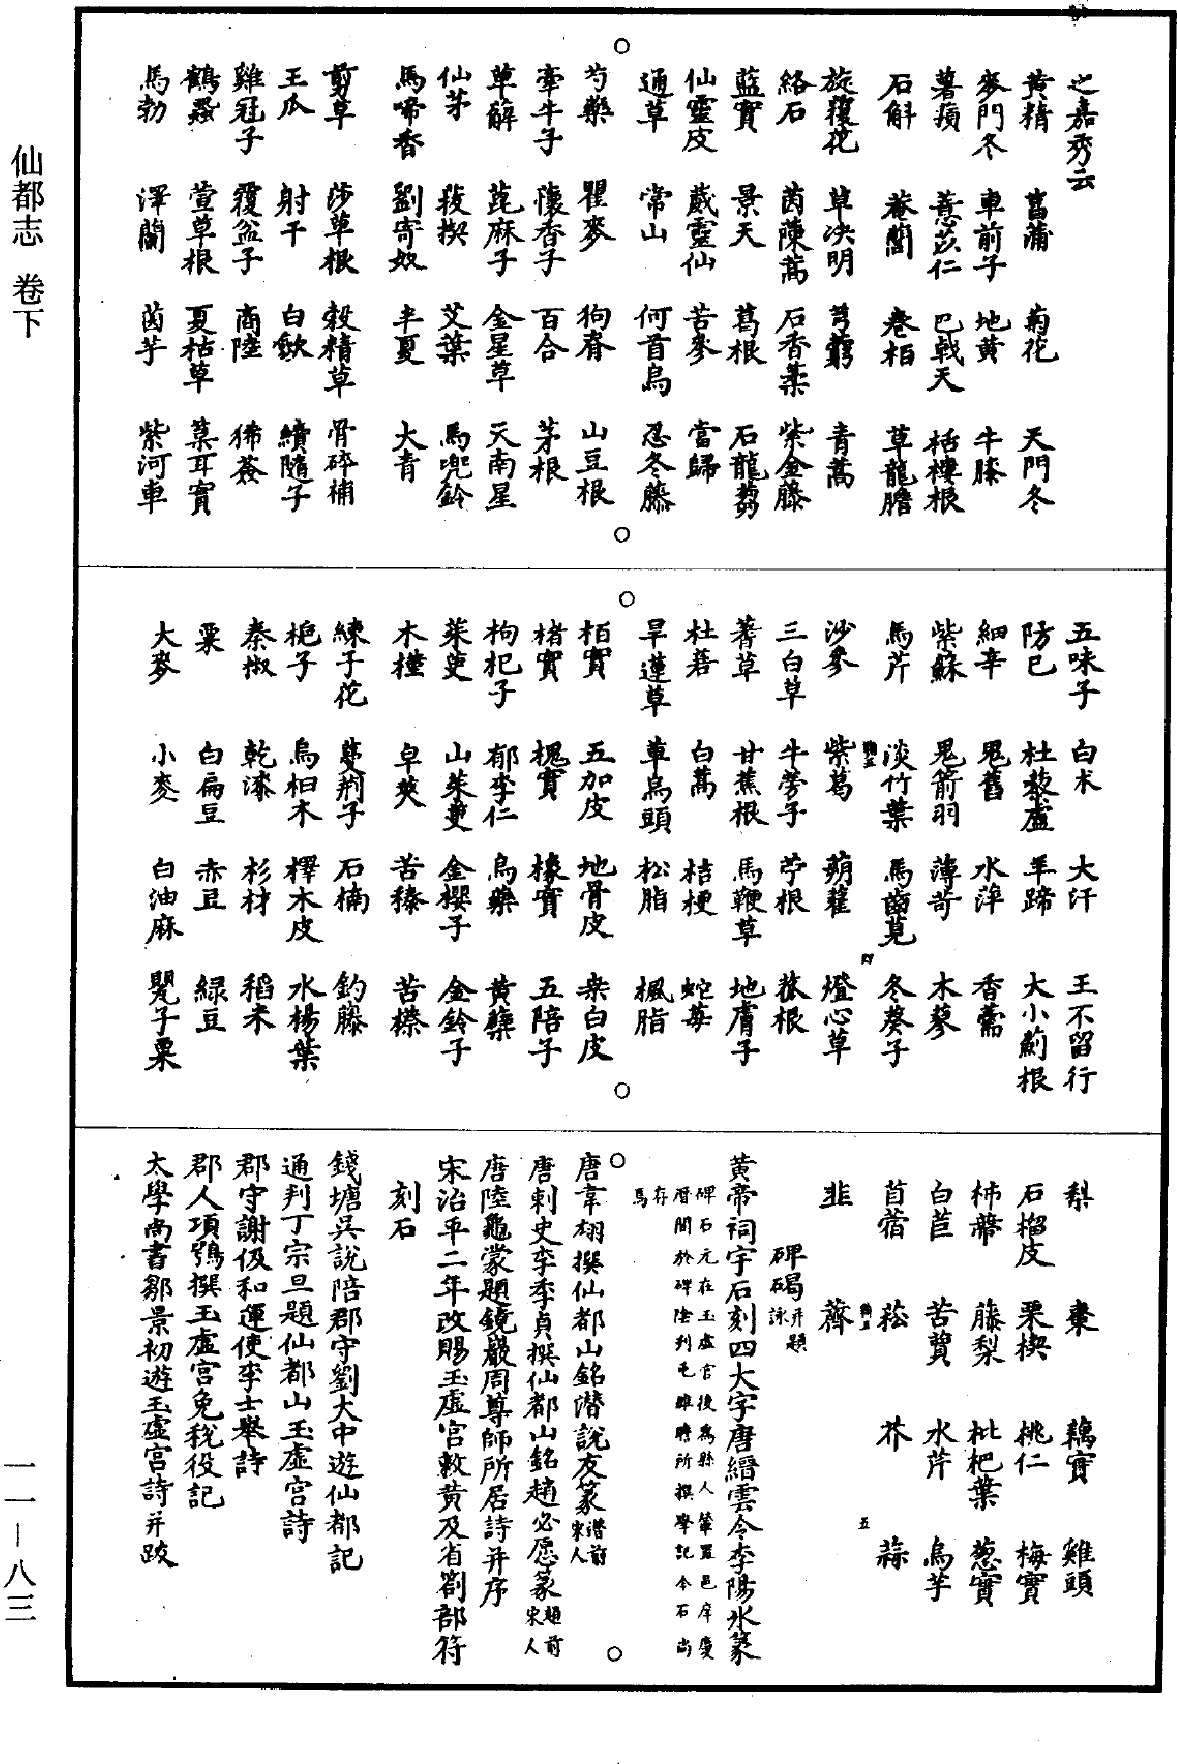 仙都志　卷下
之嘉秀云
黃精　菖蒲　菊花　天門冬
麥門冬　車前子　地黃　牛膝
薯蕷　薏苡仁　巴戟天　栝樓根
石斛　菴䕡　卷柏　草龍膽
旋覆花　草決明　芎藭　青蒿
絡石　茵蔯蒿　石香葇　紫金藤
藍實　景天　葛根　石龍蒭
仙靈皮　葳靈仙　苦參　當歸
通草　常山　何首烏　忍冬藤
芍藥　瞿麥　狗脊　山豆根
牽牛子　懷香子　百合　茅根
萆薢　萞麻子　金星草　天南星
仙茅　菝楔　艾葉　馬兜鈴
馬啼香　劉寄奴　半夏　大青
剪草　莎草根　穀精草　骨碎補
王瓜　射干　白歛　續隨子
雞冠子　覆盆子　商陸　豨薟
鶴蝨　萱草根　夏枯草　菓耳實
馬勃　澤蘭　茵芋　紫河車
五味子　白朮　大汗　王不留行
防巳　杜藜盧　羊蹄　大小薊根
細辛　鬼舊　水萍　香薷
紫蘇　鬼箭羽　薄苛　木蓼
馬芹　淡竹葉　馬齒莧　冬葵子
沙參　紫葛　蒴藋　燈心草
三白草　牛蒡子　苧根　菻根
蓍草　甘蕉根　馬鞭草　地膚子
杜蒻　白蒿　桔梗　蛇莓
旱蓮草　草烏頭　松脂　楓脂
柏實　五加皮　地骨皮　桒白皮
楮實　槐實　橡實　五陪子
枸杞子　郁李仁　烏藥　黃蘗
茱萸　山茱萸　金櫻子　金鈴子
木槿　皁莢　苦㯠　苦檫
練子花　蔓荊子　石楠　釣藤
梔子　烏桕木　檡木皮　水楊葉
秦椒　乾漆　杉材　稻米
粟　白扁豆　赤豆　綠豆
大麥　小麥　白油麻　甖子粟
梨　棗　藕實　雞頭
石榴皮　栗楔　桃仁　梅實
柿蔕　藤梨　枇杷葉　葱實
白苣　苦蕒　水芹　烏芋
苜蓿　菘　芥　蒜
韭　薺
碑碣并題詠
黃帝祠宇石刻四大字唐縉雲令李陽冰篆
碑石元在玉虛宮後爲縣人輦置邑庠慶
曆間於碑陰刋毛維瞻所撰學記今石尚
存
焉
唐韋翃撰仙都山銘潛說友篆潛前宋人
唐刺史李季貞撰仙都山銘趙必愿篆趙前宋人
唐陸龜蒙題鏡巖周尊師所居詩并序
宋治平二年改賜玉虛宮敕黃及省劄部符
刻石
錢塘吳說陪郡守劉大中遊仙都記
通判丁宗旦題仙都山玉虛宮詩
郡守謝伋和運使李士舉詩
郡人項鶚撰玉虛宮免稅役記
太學尚書鄒景初遊玉虛宮詩并跋
一一—八三